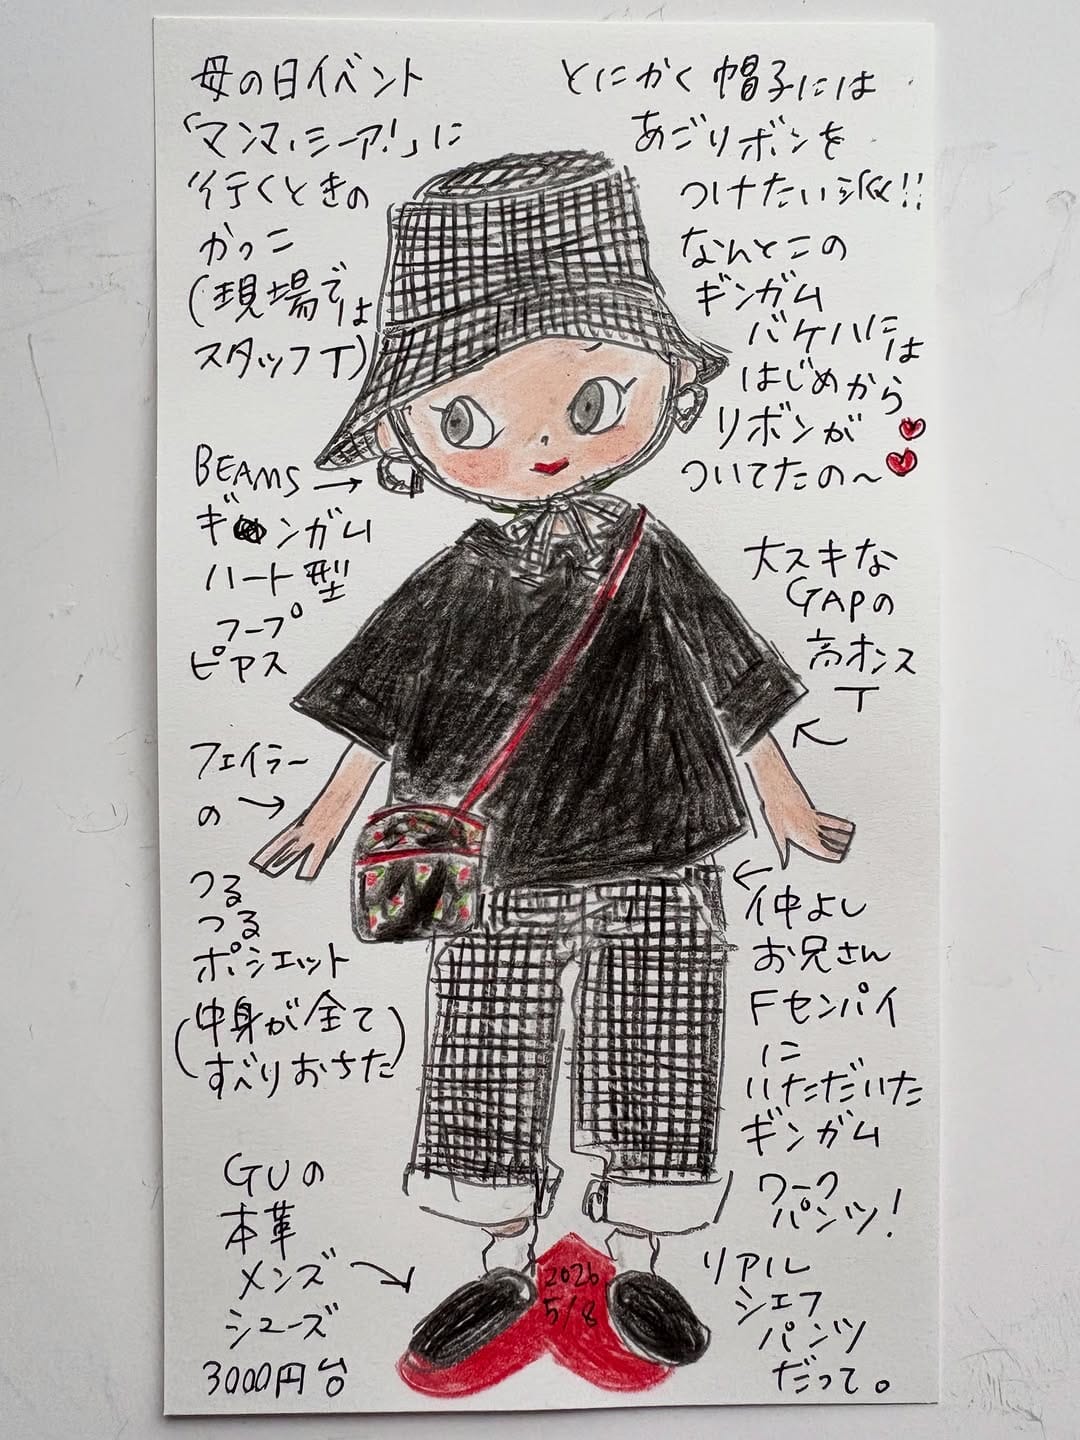 母の日イベント
「マンマ・ミーア!」に
行くときの
かっこ
(現場では
スタッフT)
BEAMS
ギンガム
ハート型
フープ
ピアス
フェイラー
の
つる
つる
ポシェット
(中身が全て
すべりおちた)
GUの
本革
メンズ
シューズ
3000円台
とにかく帽子には
あごリボンを
つけたい派!!
なんとこの
ギンガム
バケハには
はじめから
リボンが
ついてたの〜
大スキな
GAPの
高オンス
T
仲よし
お兄さん
Fセンパイ
に
いただいた
ギンガム
ワーク
パンツ!
リアル
シェフ
パンツ
だって。
2026
5/8